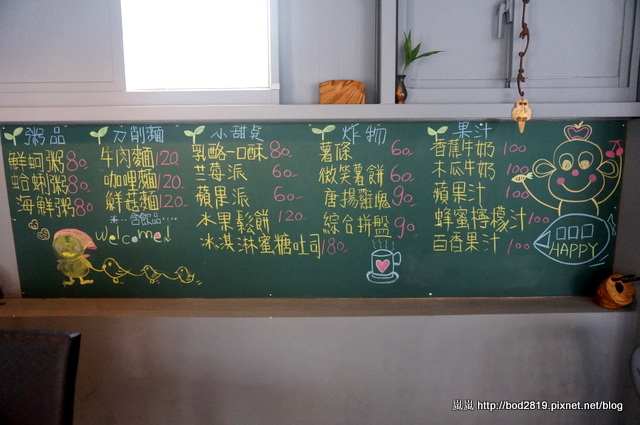 粥品
鮮蚵粥80.
蛤蜊粥80.
海鮮粥80
刀削麵
牛肉麵120.
咖哩麵120
鮮菇麵120.
*...含飲品...
welcome!
小甜点
乳酪一口酥80.
芒莓派60.
蘋果派60
水果鬆餅120.
冰淇淋蜜糖吐司180.
炸物
薯條60.
微笑薯餅60.
唐揚雞塊90.
綜合拼盤90.
果汁
香蕉牛奶100
木瓜牛奶100
蘋果汁100
蜂蜜檸檬汁100
百香果汁100
HAPPY
嵐嵐 http://bod2819.pixnet.net/blog